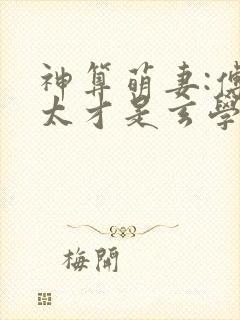 神算萌妻:傅
太才是玄學
梅開